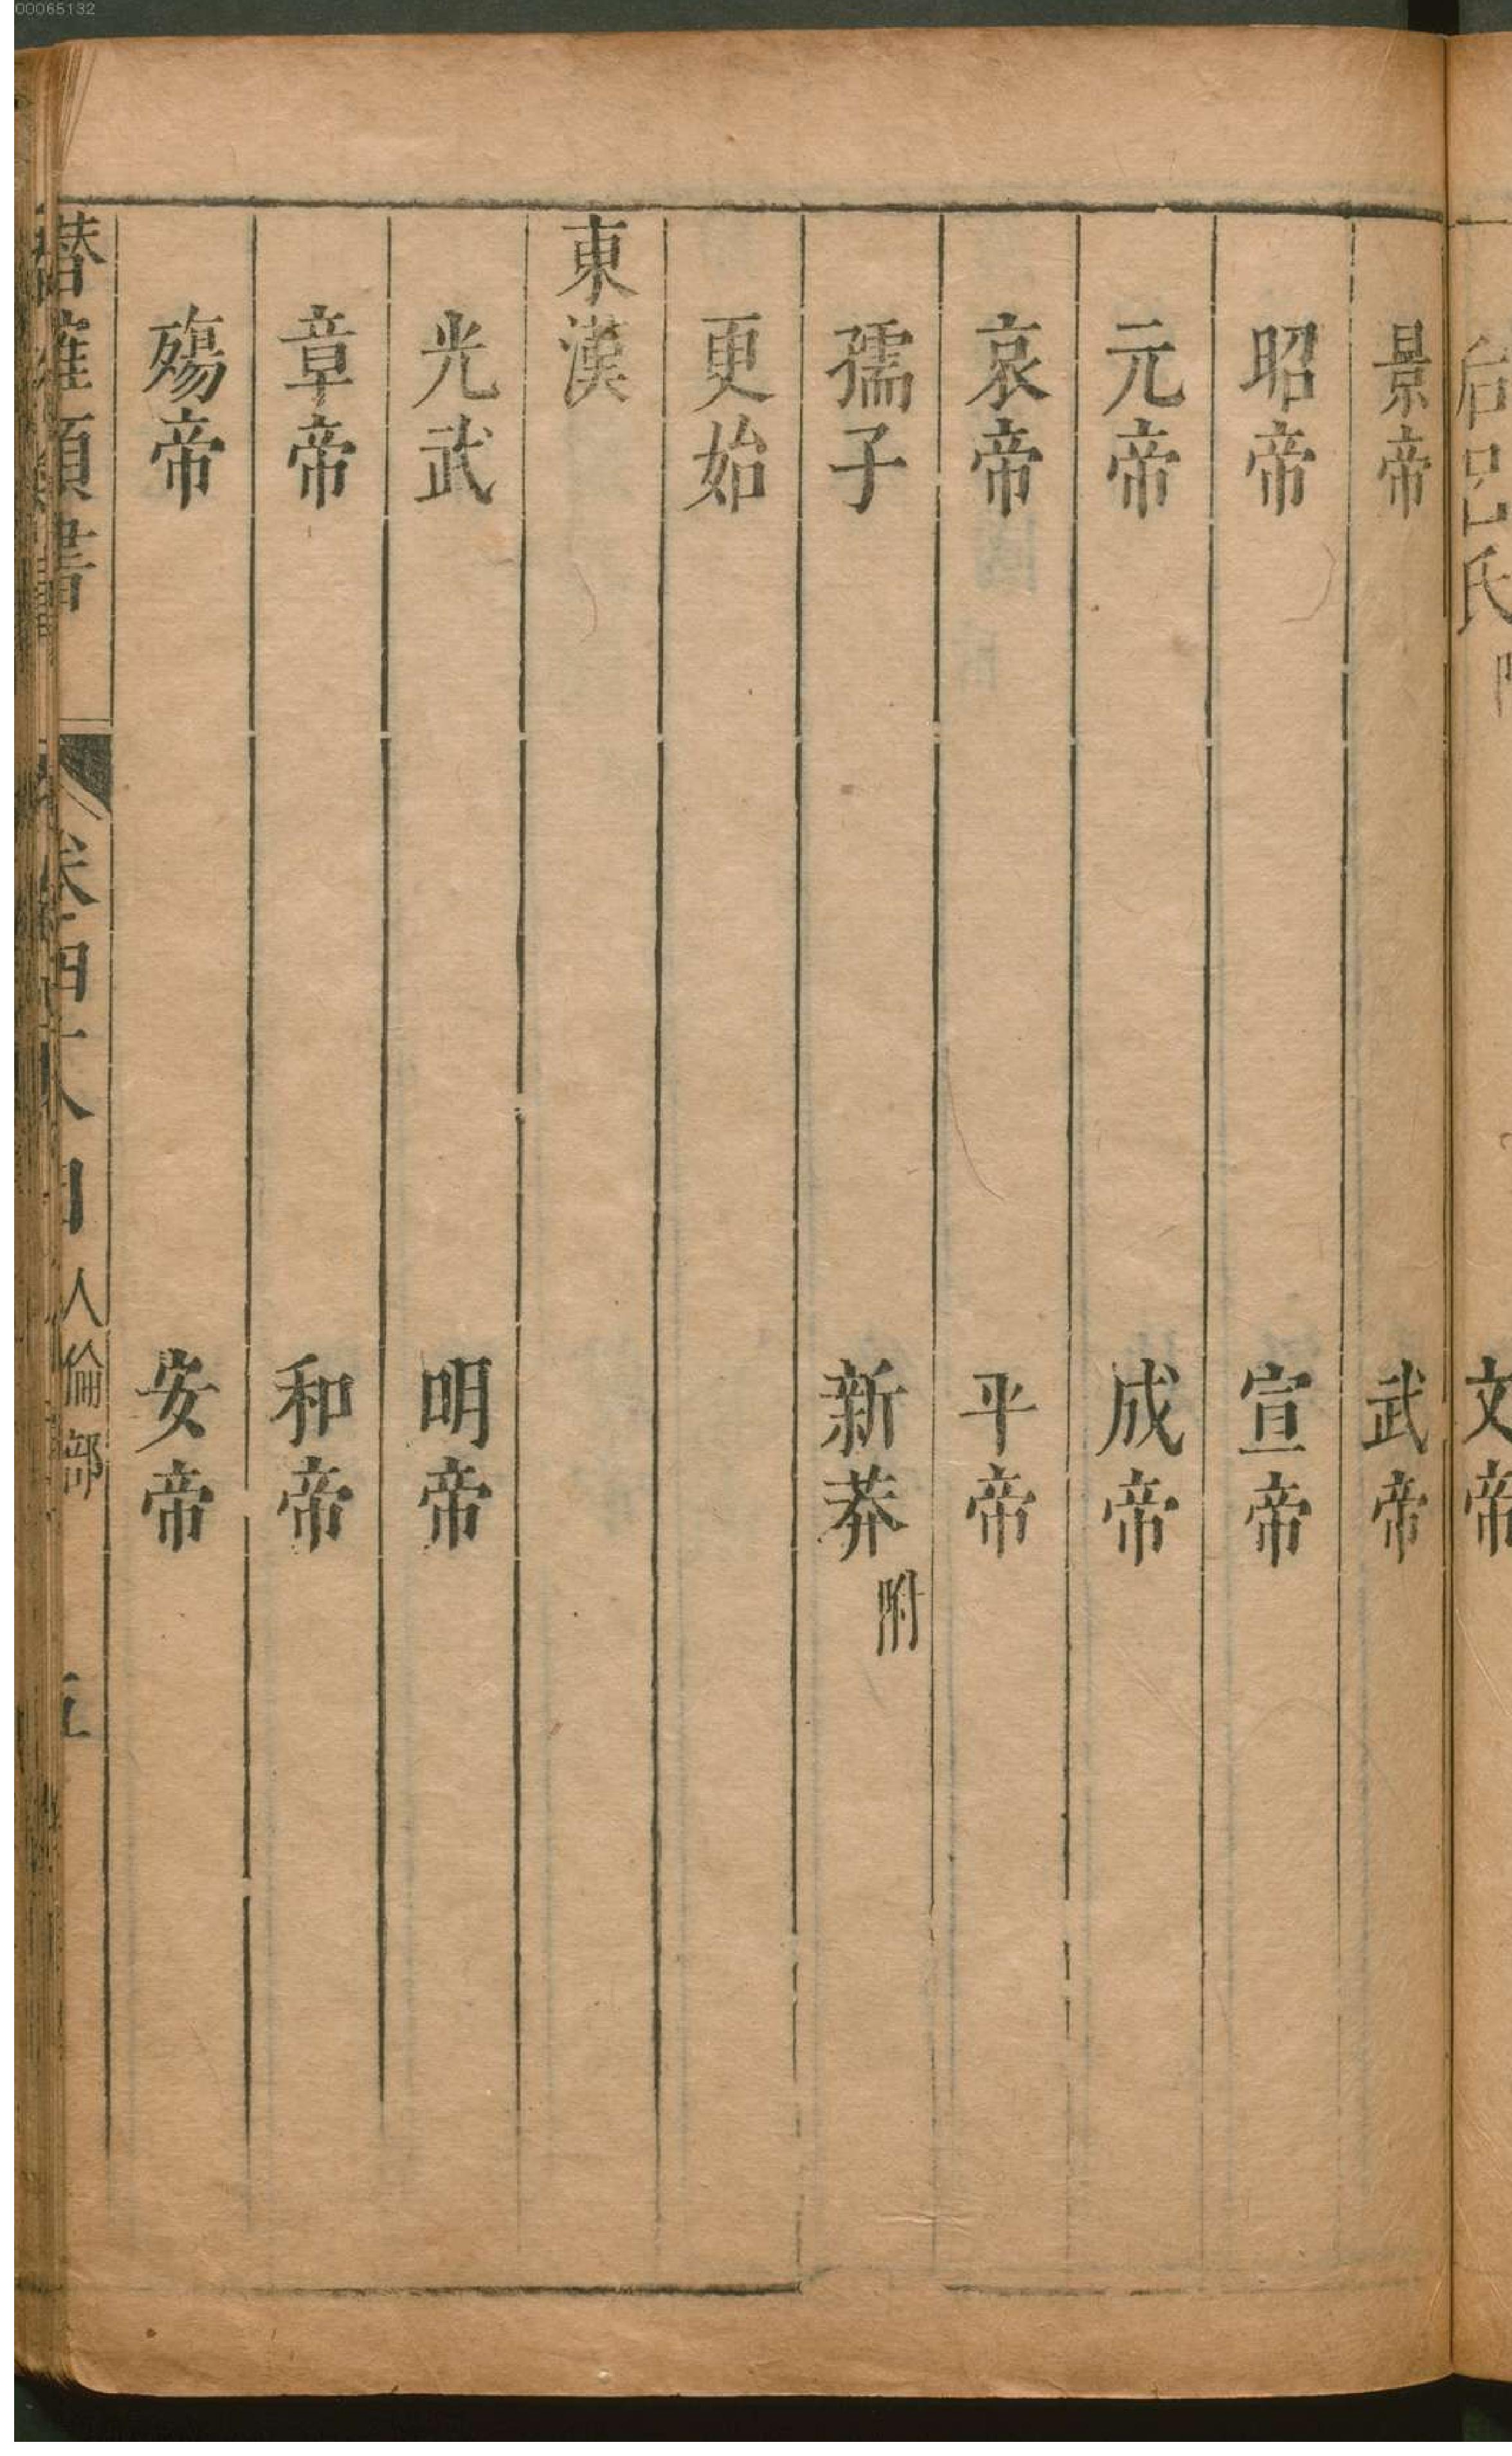 00065132
后呂氏
文帝
景帝　武帝
昭帝　宣帝
元帝　成帝
哀帝　平帝
孺子　新莽附
更始
東漢
光武　明帝
章帝　和帝
殤帝　安帝
潛確類書　卷四十　目　人倫部　五